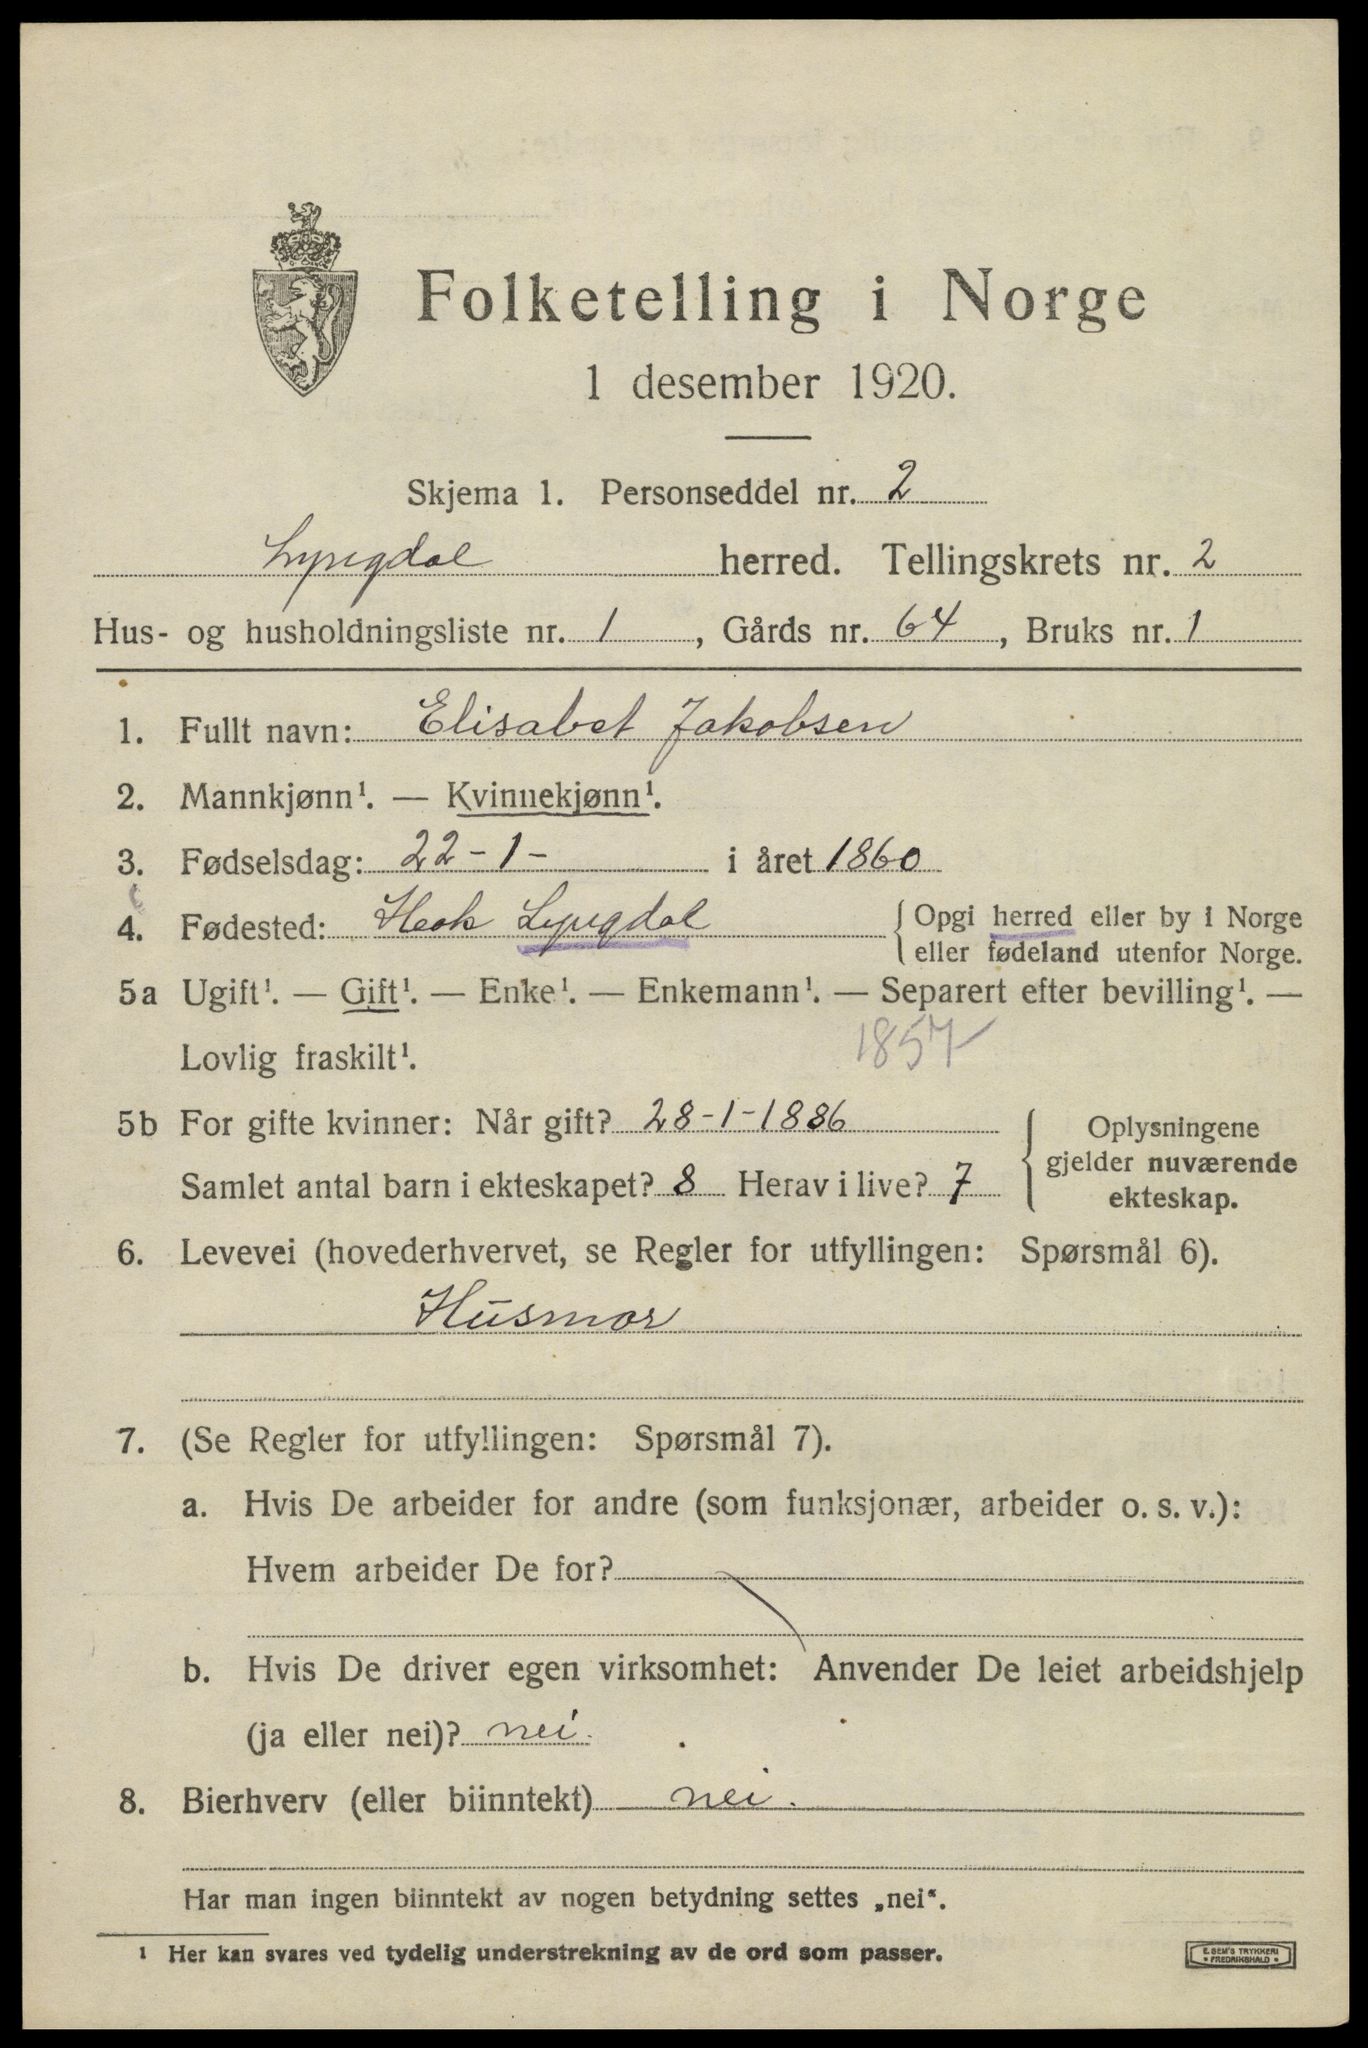 Folketelling i Norge
1 desember 1920.
Skjema 1. Personseddel nr. 2
Lyngdal herred. Tellingskrets nr. 2
Hus- og husholdningsliste nr. 1, Gårds nr. 64, Bruks nr. 1
1. Fullt navn: Elisabet Jakobsen
2. Mannkjønn¹. — Kvinnekjønn¹.
3. Fødselsdag: 22-1- i året 1860
4. Fødested: Lyngdal { Opgi herred eller by i Norge
eller fødeland utenfor Norge.
5a Ugift¹. — Gift¹. — Enke¹. — Enkemann¹. — Separert efter bevilling¹. —
Lovlig fraskilt¹. 1857
5b For gifte kvinner: Når gift? 28-1-1886
Samlet antal barn i ekteskapet? 8 Herav i live? 7
Oplysningene
gjelder nuværende
ekteskap.
6. Levevei (hovederhvervet, se Regler for utfyllingen: Spørsmål 6).
Husmor
7. (Se Regler for utfyllingen: Spørsmål 7).
a. Hvis De arbeider for andre (som funksjonær, arbeider o. s. v.):
Hvem arbeider De for?
b. Hvis De driver egen virksomhet: Anvender De leiet arbeidshjelp
(ja eller nei)? nei.
8. Bierhverv (eller biinntekt) nei.
Har man ingen biinntekt av nogen betydning settes „nei“.
¹ Her kan svares ved tydelig understrekning av de ord som passer.
E. SEM'S TRYKKERI
• FREDRIKSHALD •